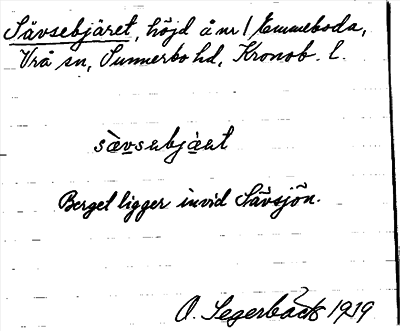 Sävsebjäret, höjd å nr 1 Emmeboda,
Vrå sn, Sunnerbo hd, Kronob. l.
Berget ligger invid Sävsjön.
O. Segerbäck 1919